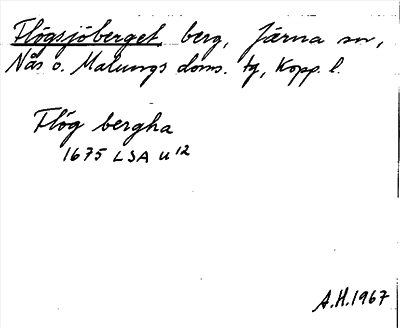 Flögsjöberget berg, Järna sn,
Nås o. Malungs doms. tg, Kopp. l.
Flög bergha
1675 LSA U 12
A.H. 1967